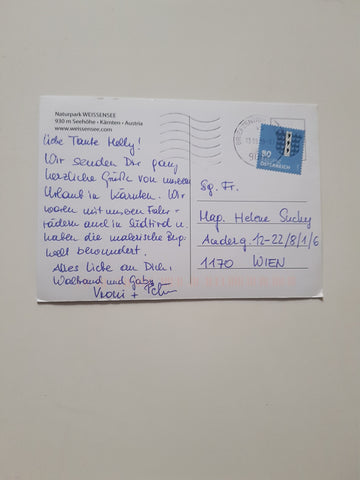 Naturpark WEISSENSEE
930 m Seehöhe • Kärnten • Austria
www.weissensee.com
Liebe Tante Helly!
Wir senden Dir ganz
herzliche Grüße von unserem
Urlaub in Kärnten. Wir
waren mit unseren Fahr-
rädern auch in Südtirol u.
haben die malerische Berg-
welt bewundert.
Alles Liebe an Dich,
Waltraud und Gaby
Vroni +
90
ÖSTERREICH
Sg. Fr.
Mag. Helene
Anderg. 12-22/8/1/6
1170 WIEN